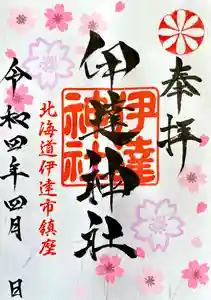 奉拝
伊達神社
伊達神社
北海道伊達市鎮座
令和四年四月 日